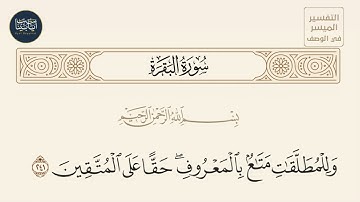 التفسير
الميسر
في الوصف
سُورَةُ البَقَرَةِ
بِسْمِ اللَّهِ الرَّحْمَٰنِ الرَّحِيمِ
وَلِلْمُطَلَّقَاتِ مَتَاعٌ بِالْمَعْرُوفِ ۖ حَقًّا عَلَى الْمُتَّقِينَ ٢٤١